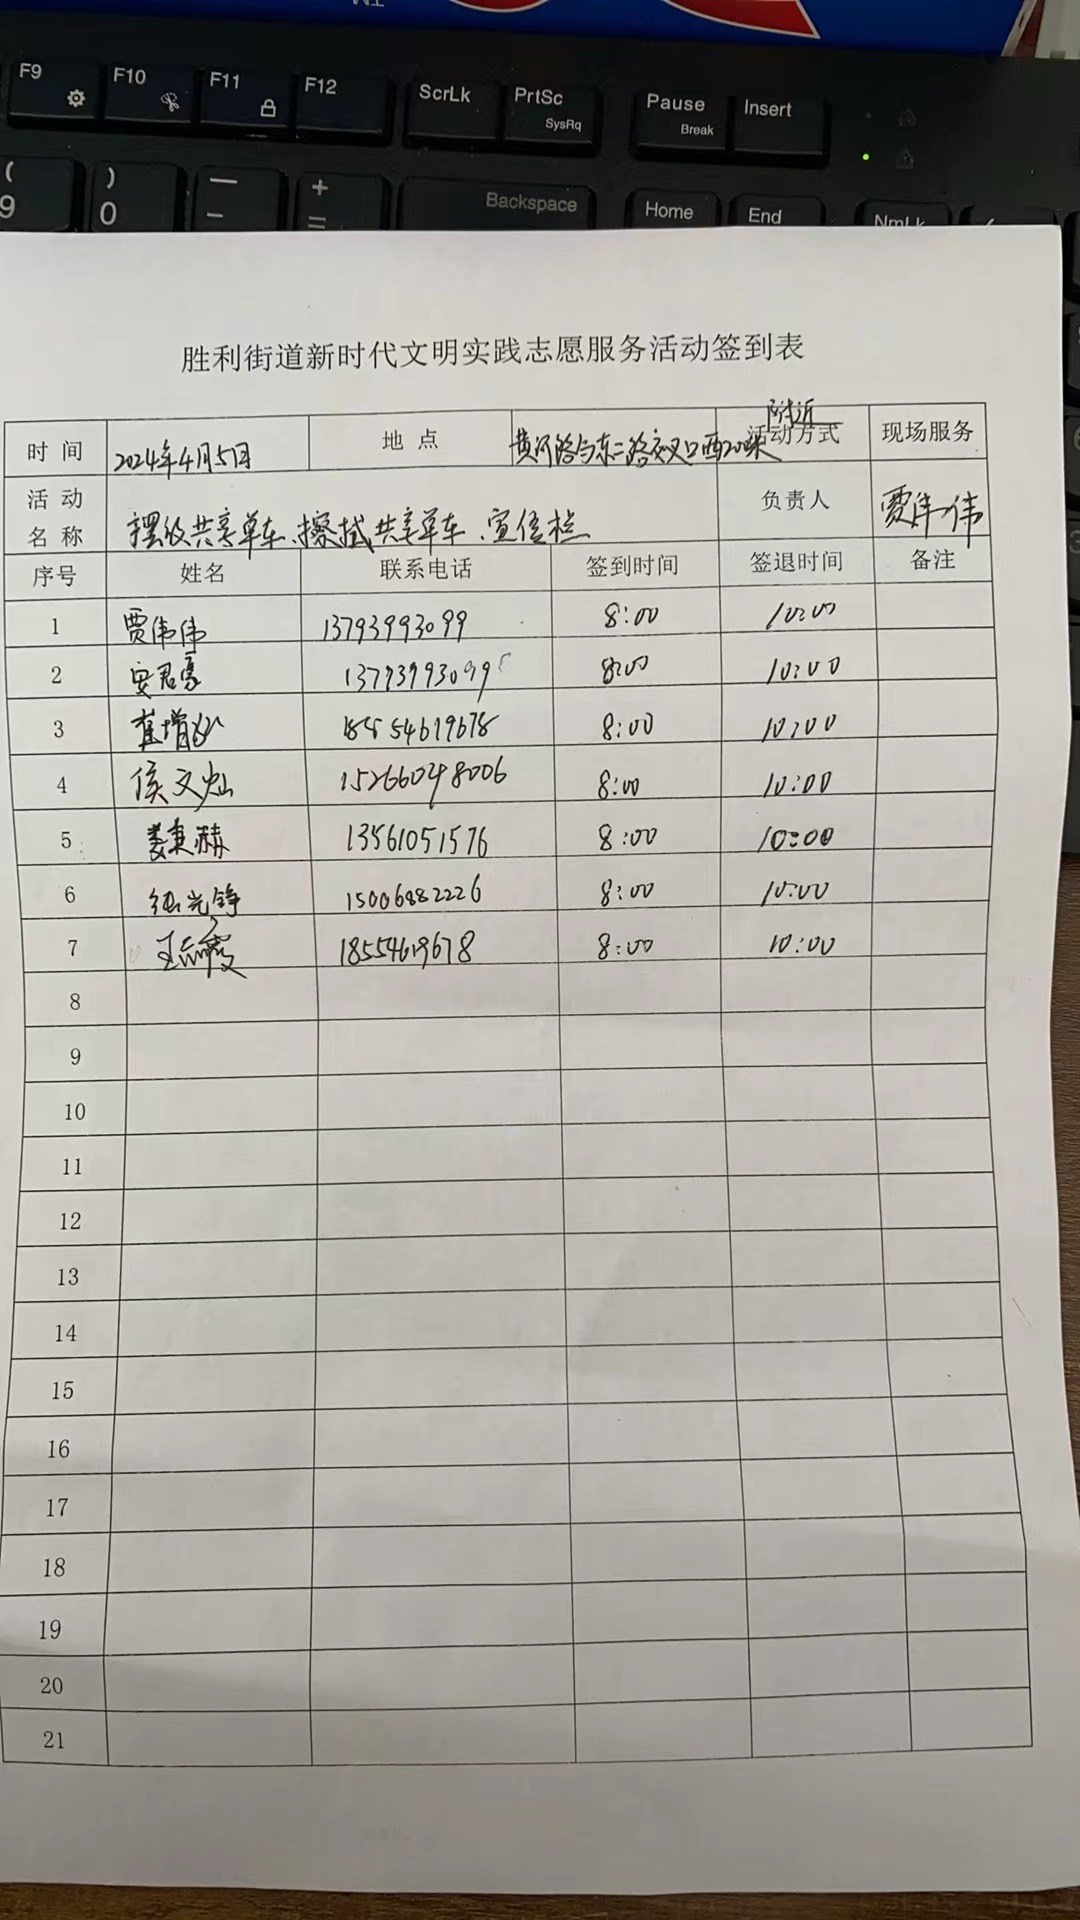 F9 F10 F11 F12 ScrLk PrtSc SysRq Pause Break Insert
( 9 ) 0 — - + = Backspace Home End NmLk
胜利街道新时代文明实践志愿服务活动签到表
附近
时 间 2024年4月5日 地 点 黄河路与东二路交叉口西20米 活动方式 现场服务
活 动 名 称 摆放共享单车、擦拭共享单车、宣传栏 负责人 贾伟伟
序号 姓名 联系电话 签到时间 签退时间 备注
1 贾伟伟 13793993099 8:00 10:00
2 安君豪 8:00 10:00
3 18554619678 8:00 10:00
4 侯文灿 15266048006 8:00 10:00
5 娄秉赫 13561051576 8:00 10:00
6 15006882226 8:00 10:00
7 18554619678 8:00 10:00
8
9
10
11
12
13
14
15
16
17
18
19
20
21